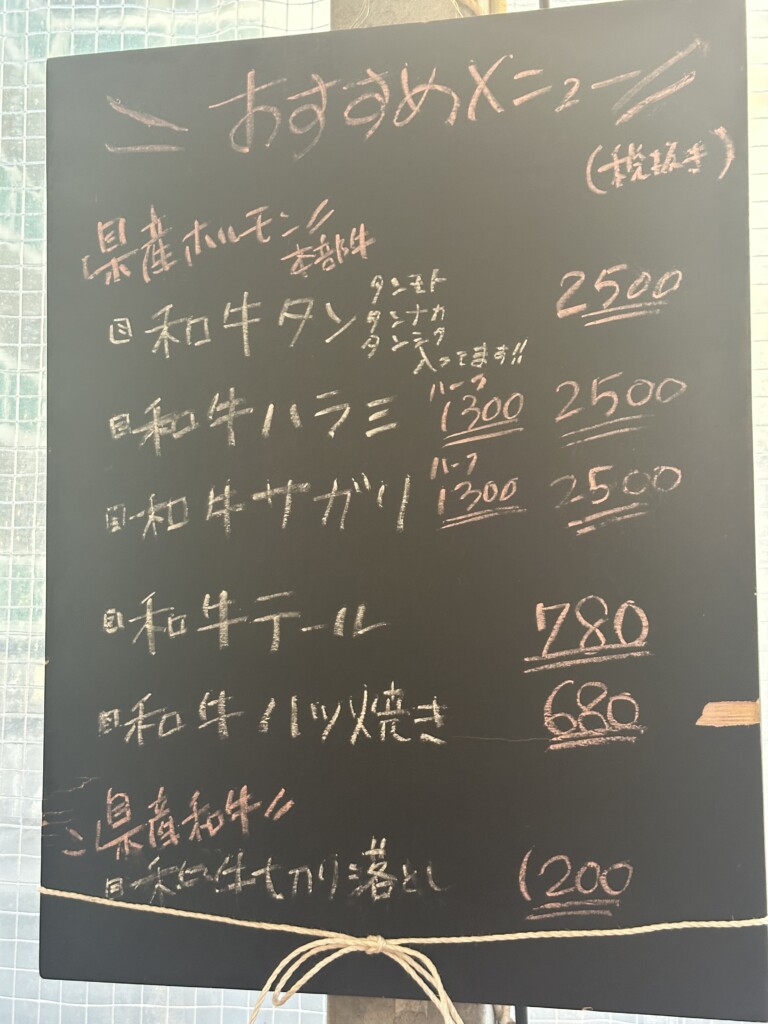 おすすめメニュー
(税抜き)
県産ホルモン!!
本部牛
和牛タン タンモト タンナカ タンシタ 入ってます!! 2500
和牛ハラミ ハーフ 1300 2500
和牛サガリ ハーフ 1300 2500
和牛テール 780
和牛ハツ焼き 680
県産和牛!!
和牛切り落とし 1200